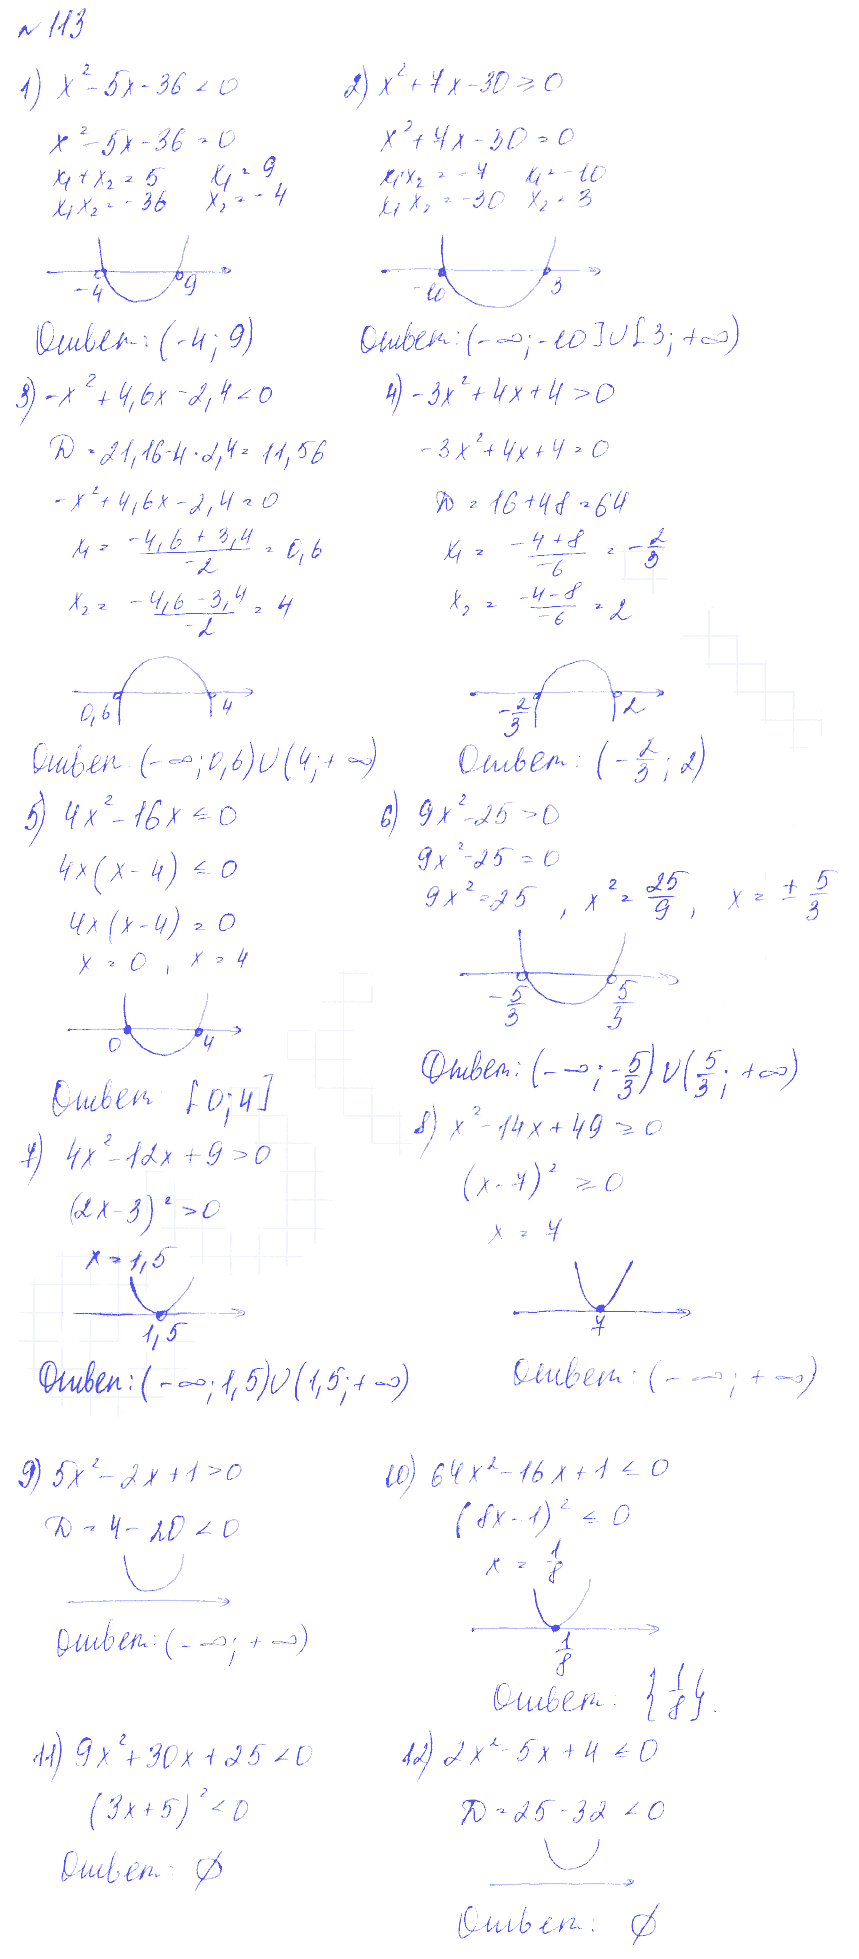 № 113
1) x² - 5x - 36 < 0
x² - 5x - 36 = 0
x₁ + x₂ = 5 x₁ = 9
x₁x₂ = -36 x₂ = -4
-4 9
Ответ: (-4; 9)
2) x² + 7x - 30 ≥ 0
x² + 7x - 30 = 0
x₁+x₂ = -7 x₁ = -10
x₁x₂ = -30 x₂ = 3
-10 3
Ответ: (-∞; -10] ∪ [3; +∞)
3) -x² + 4,6x - 2,4 < 0
D = 21,16-4·2,4 = 11,56
-x² + 4,6x - 2,4 = 0
x₁ = (-4,6 + 3,4)/(-2) = 0,6
x₂ = (-4,6 - 3,4)/(-2) = 4
0,6 4
Ответ: (-∞; 0,6) ∪ (4; +∞)
4) -3x² + 4x + 4 > 0
-3x² + 4x + 4 = 0
D = 16 + 48 = 64
x₁ = (-4 + 8)/(-6) = -2/3
x₂ = (-4 - 8)/(-6) = 2
-2/3 2
Ответ: (-2/3; 2)
5) 4x² - 16x ≤ 0
4x(x - 4) ≤ 0
4x(x - 4) = 0
x = 0, x = 4
0 4
Ответ: [0; 4]
6) 9x² - 25 > 0
9x² - 25 = 0
9x² = 25, x² = 25/9, x = ± 5/3
-5/3 5/3
Ответ: (-∞; -5/3) ∪ (5/3; +∞)
7) 4x² - 12x + 9 > 0
(2x - 3)² > 0
x = 1,5
1,5
Ответ: (-∞; 1,5) ∪ (1,5; +∞)
8) x² - 14x + 49 ≥ 0
(x - 7)² ≥ 0
x = 7
7
Ответ: (-∞; +∞)
9) 5x² - 2x + 1 > 0
D = 4 - 20 < 0
Ответ: (-∞; +∞)
10) 64x² - 16x + 1 ≤ 0
(8x - 1)² ≤ 0
x = 1/8
1/8
Ответ: {1/8}.
11) 9x² + 30x + 25 < 0
(3x + 5)² < 0
Ответ: ∅
12) 2x² - 5x + 4 ≤ 0
D = 25 - 32 < 0
Ответ: ∅